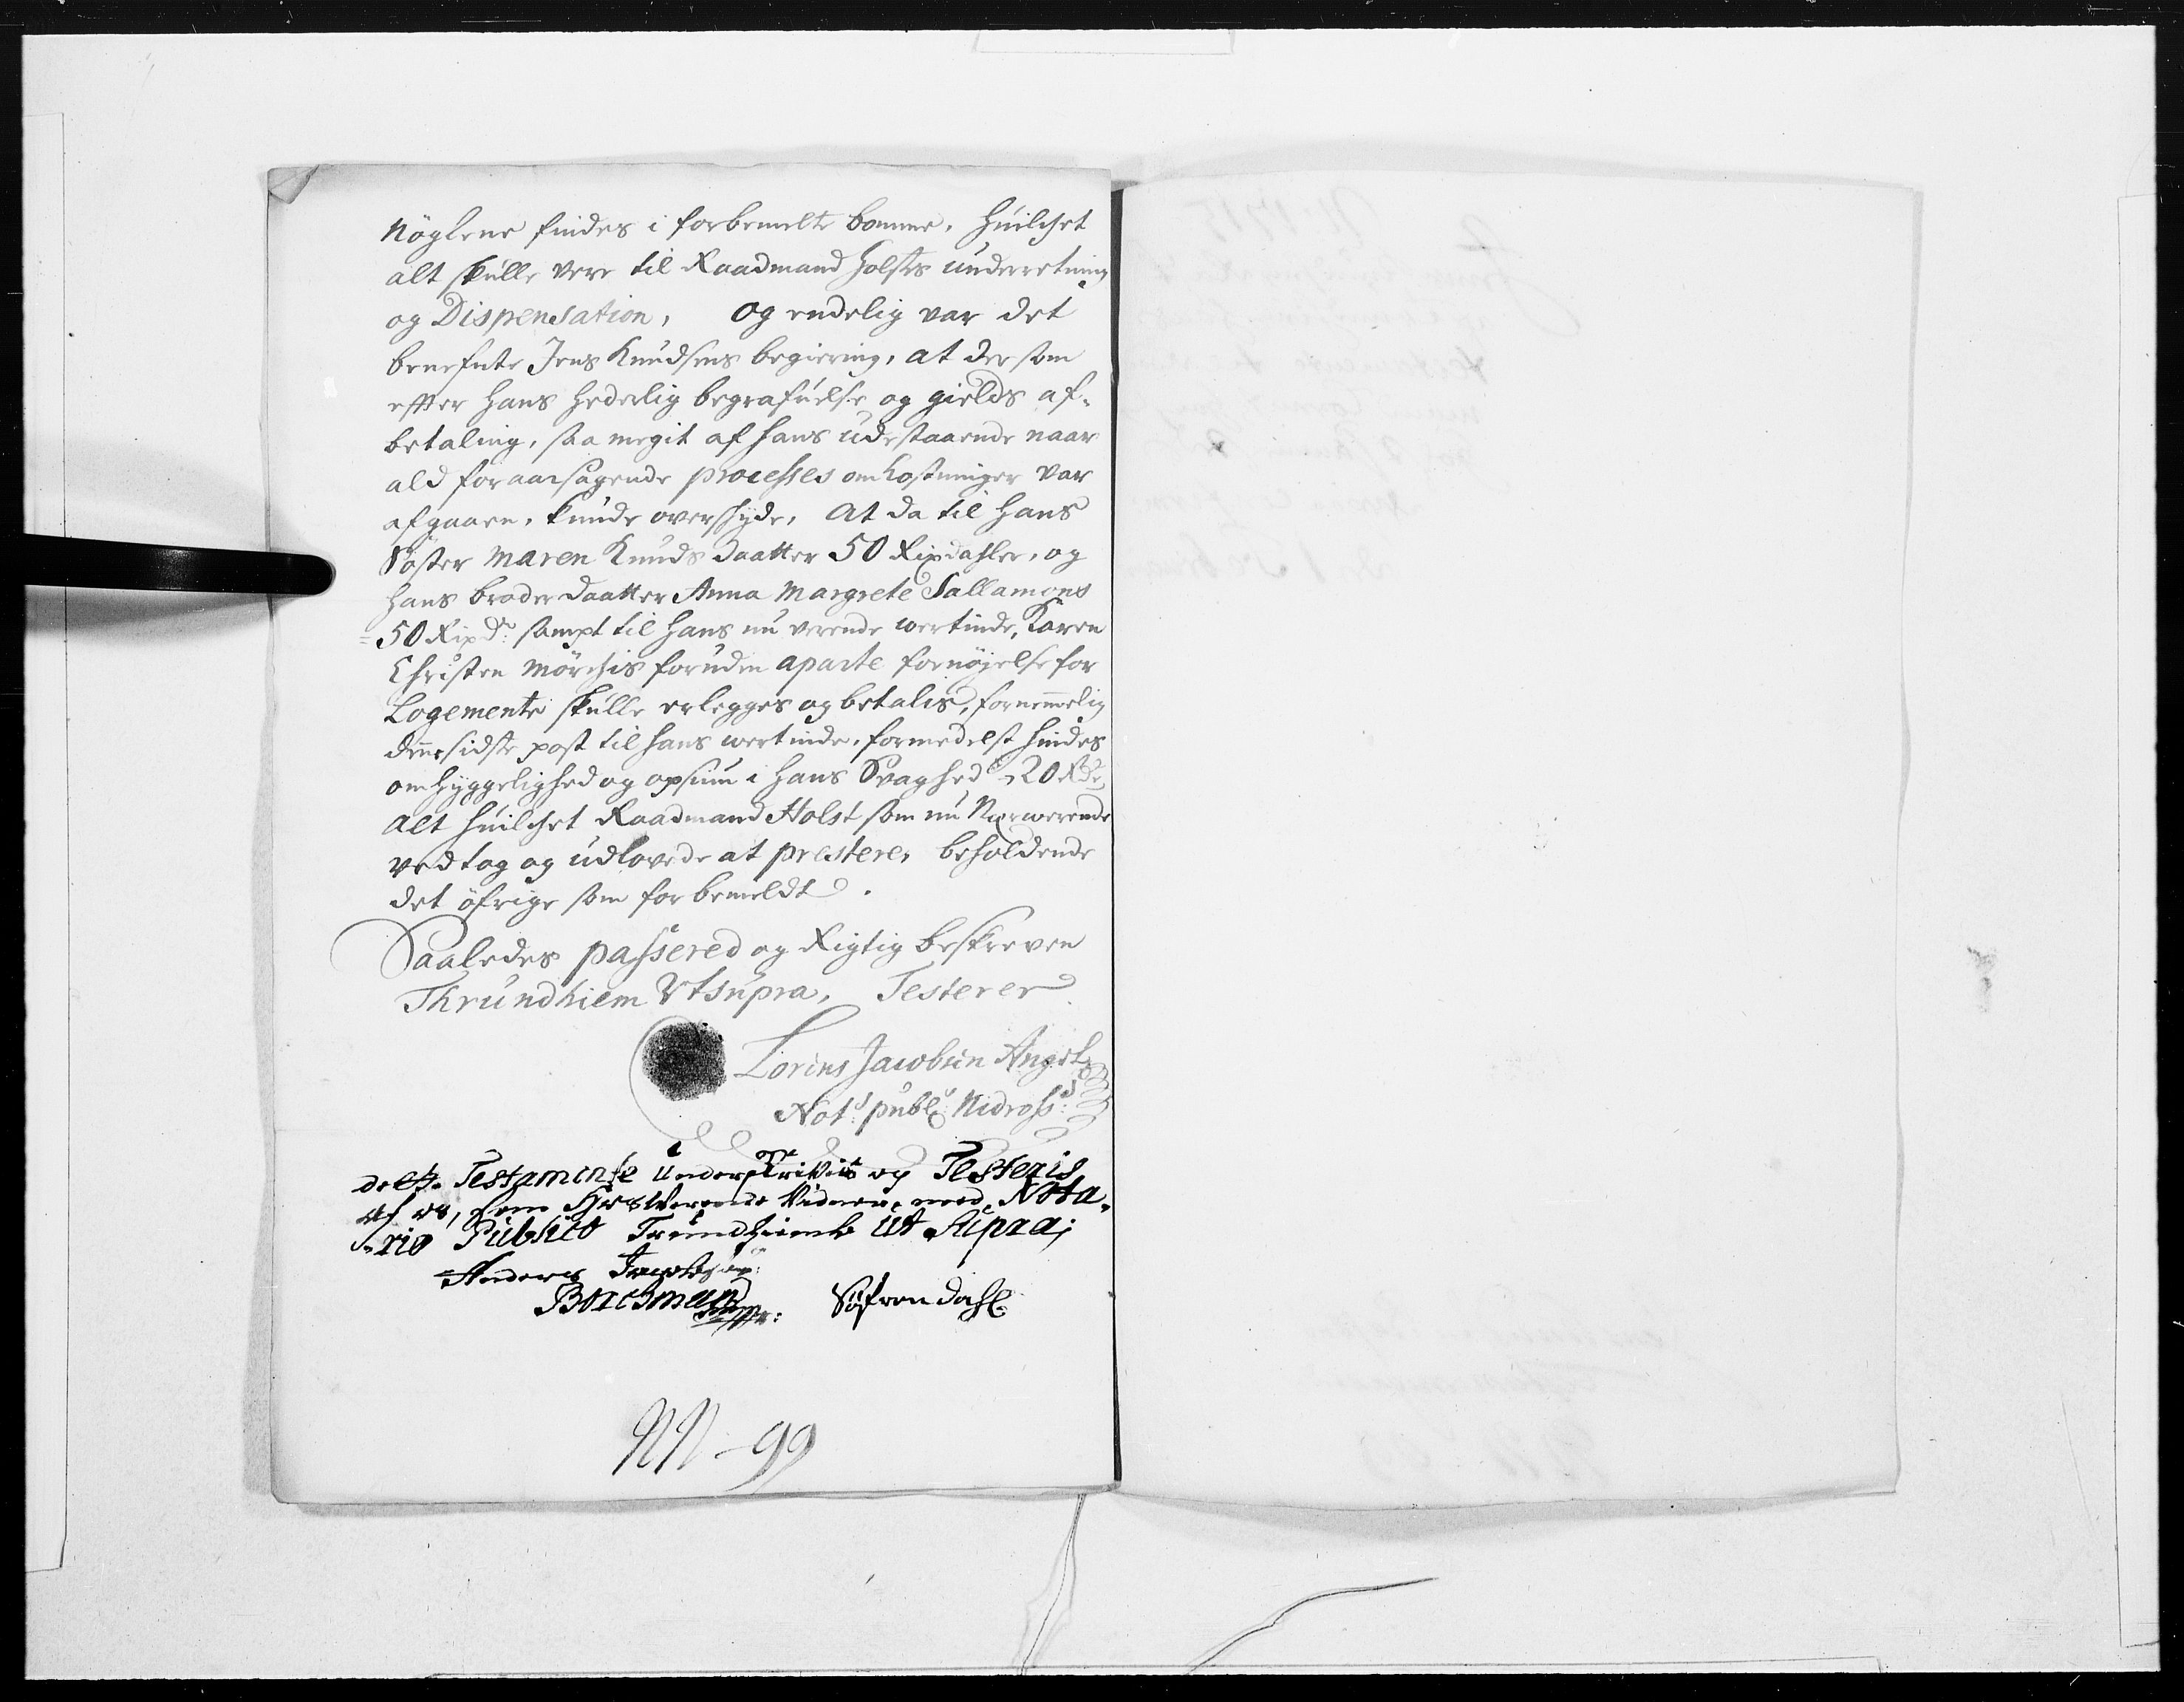 Nøglene findes i forbemelte bomme, huilchet
alt skulle vere til Raadmand Holsts underretning
og Dispensation, og endelig var det
benefnte Jens Knudsens begiering, at dersom
effter hans hederlig begrafuelse og gields af-
betaling, saa megit af hans udestaaende naar
ald foraarsagende processes omkostninger var
afgaaen, kunde overskyde, At da til hans
Søster Maren Knuds daatter 50 Rixdahler, og
hans broder daatter Anna Margrete Sallamons
50 Rixdr: sampt til hans nu verende wertinde, Karen
Christen Mørchis foruden aparte fornøjelse for
Logemente skulle erlegges og betalis, fornemmelig
denne sidste post til hans wertinde, formedelst hindes
omhyggelighed og opsiun i hans Svaghed, 20 Rdr,
Alt huilchet Raadmand Holst som nu Nærwerende
vedtog og udlovede at præstere, beholdende
det øfrige som forbemeldt.
Saaledes passered og Rigtig beskreven
Thrundhiem Utsupra, Testerer
Lorens Jacobsen Angel
Nots: publs: Nidross:
dette Testamente Underskrivis og Testeris
af os, som Hosverende Vidner, med Nota-
rio Publico Trundhiemb Ut Supra;
Anders Jacobsøn
Borchman Søfren Dahl
NN - 99